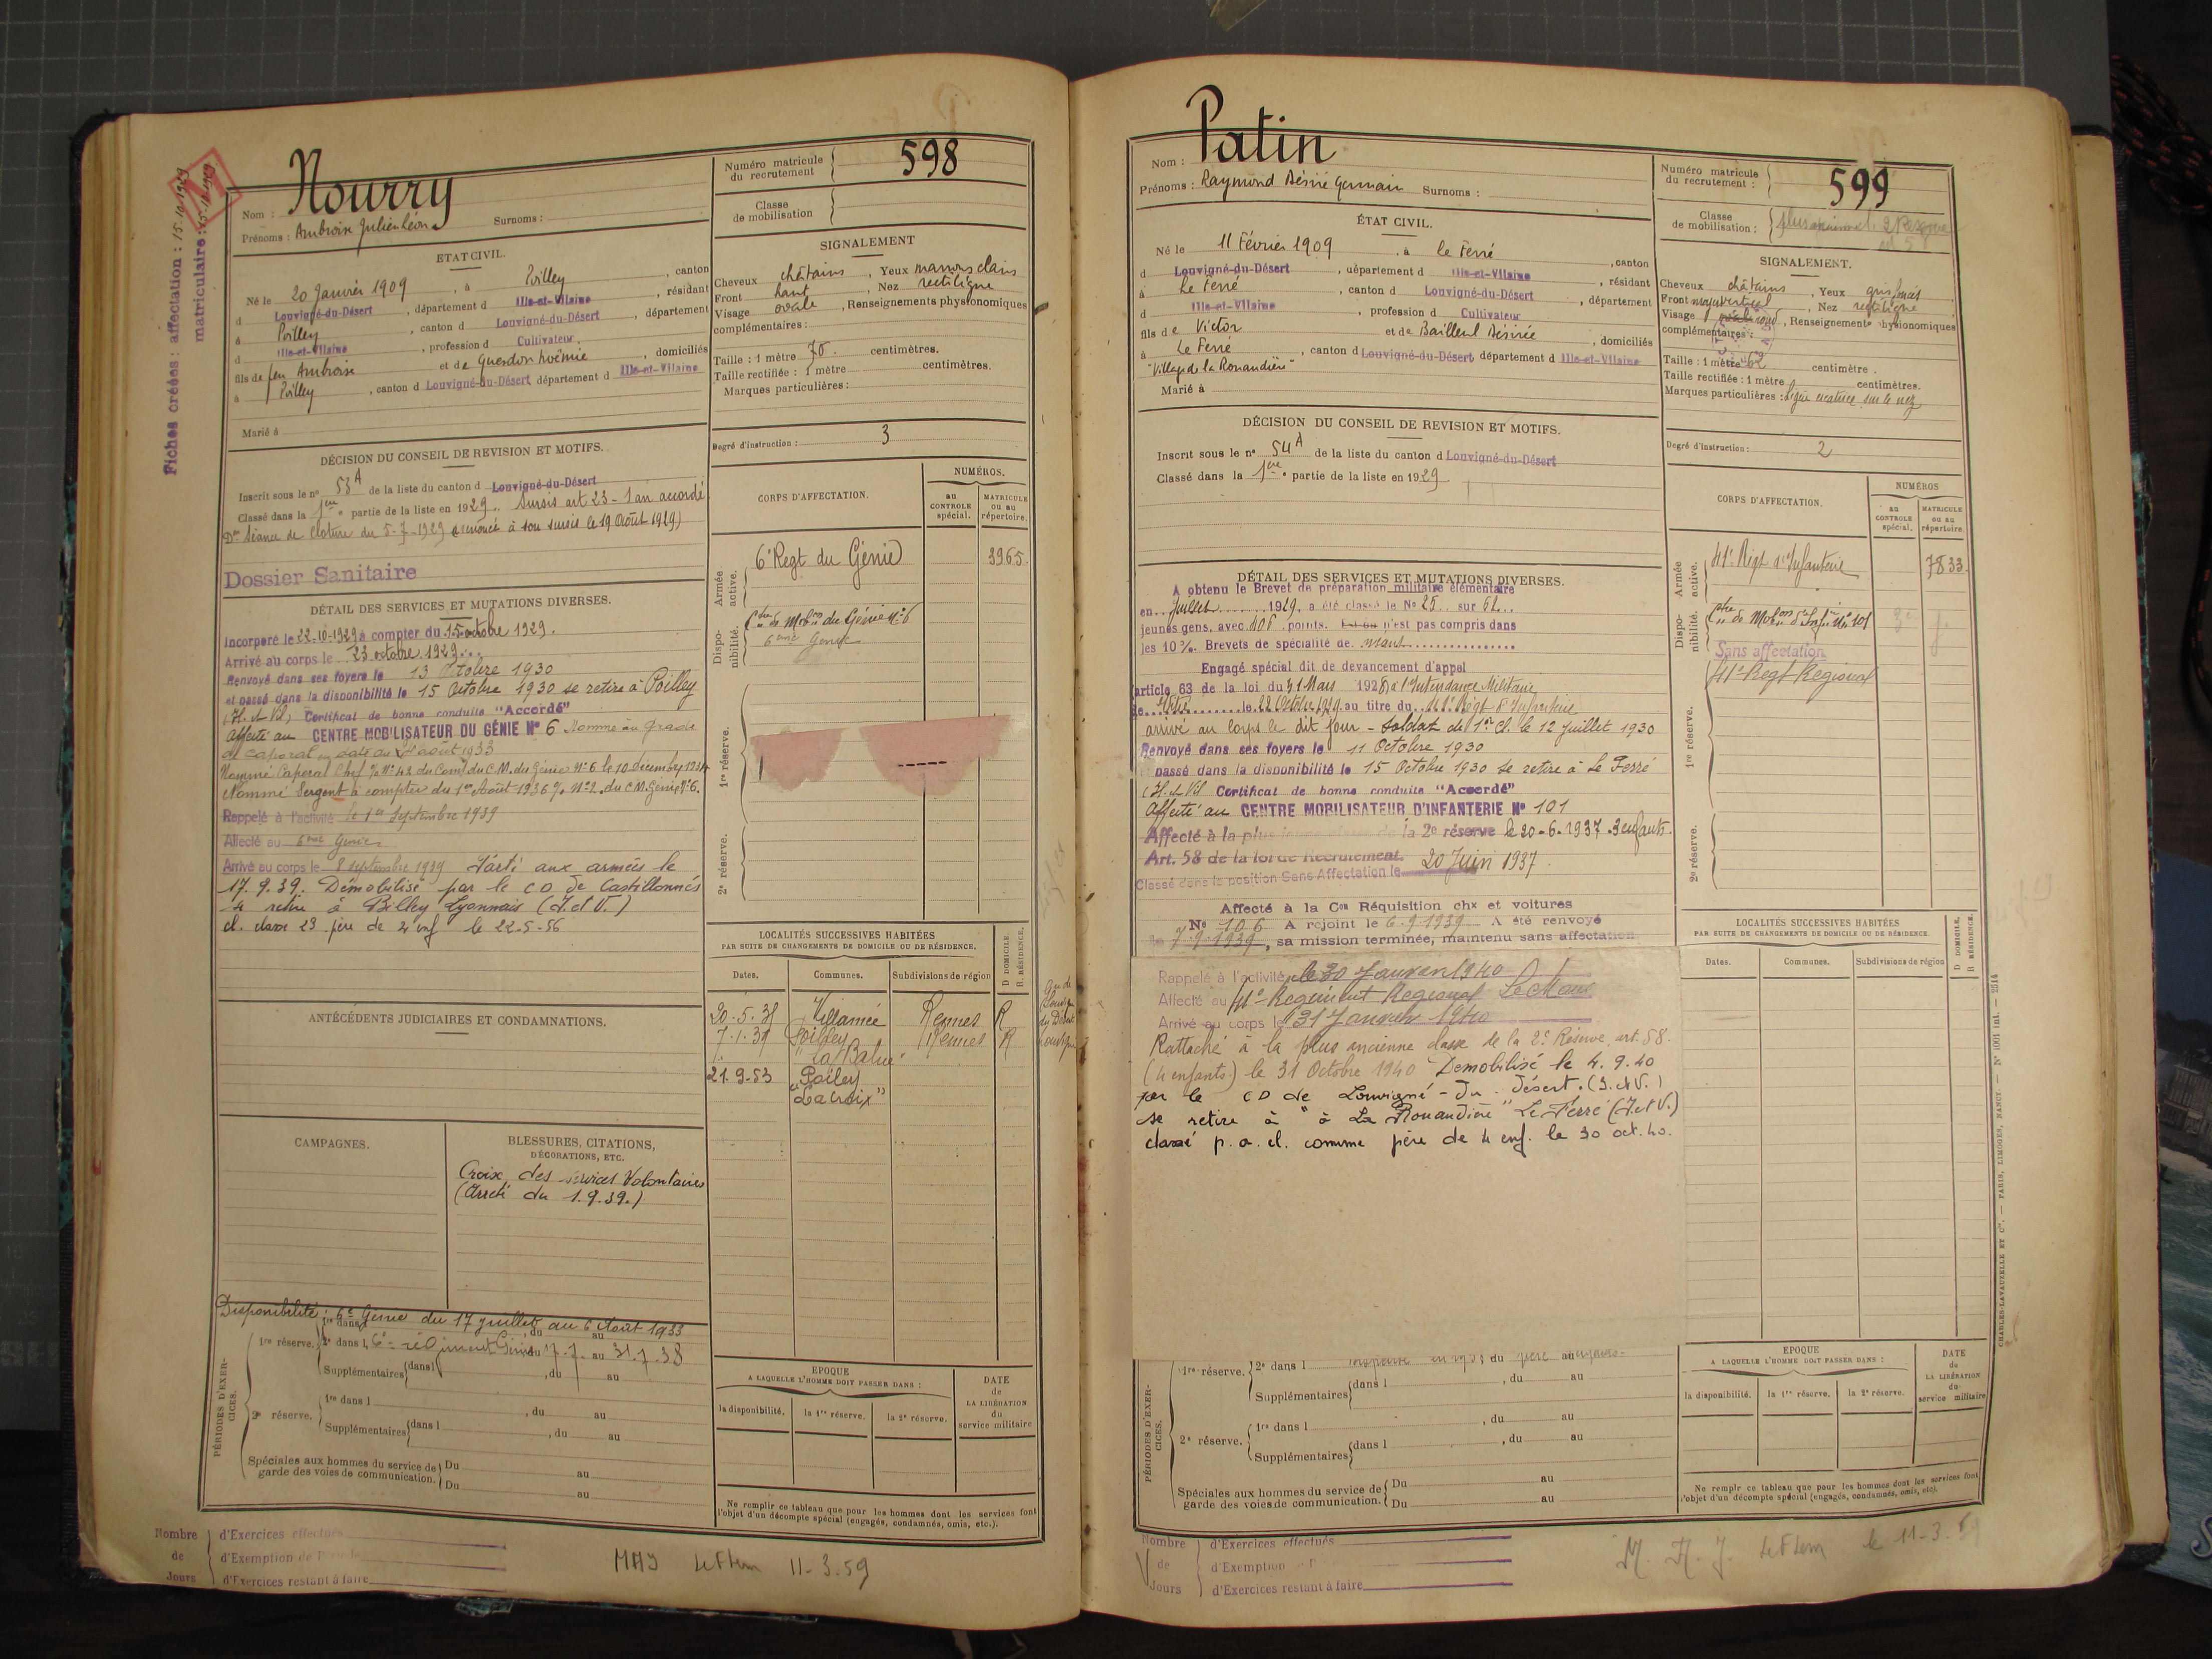 Fiches créées : affectation : 15.10.1929
matriculaire : 15.10.1929
M
Nom : Nourry
Prénoms : Ambroise Julien Léon Surnoms :
ÉTAT CIVIL.
Né le 20 Janvier 1909, à Poilley, canton
d Louvigné-du-Désert, département d Ille-et-Vilaine, résidant
à Poilley, canton d Louvigné-du-Désert, département
d Ille-et-Vilaine, profession d Cultivateur,
fils de feu Ambroise et de Guesdon Noémie, domiciliés
à Poilley, canton d Louvigné-du-Désert département d Ille-et-Vilaine
Marié à
DÉCISION DU CONSEIL DE REVISION ET MOTIFS.
Inscrit sous le no 53 A de la liste du canton d Louvigné-du-Désert
Classé dans la 1ère partie de la liste en 1929. Sursis art 23 - 1 an accordé
Don Séance de cloture du 5-7-1929 (renoncé à son sursis le 19 Août 1929)
Dossier Sanitaire
DÉTAIL DES SERVICES ET MUTATIONS DIVERSES.
Incorporé le 22-10-1929 à compter du 15 octobre 1929.
Arrivé au corps le 23 octobre 1929...
Renvoyé dans ses foyers le 13 Octobre 1930
et passé dans la disponibilité le 15 Octobre 1930 se retire à Poilley
(Il. et Vil) Certificat de bonne conduite "Accordé"
Affecté au CENTRE MOBILISATEUR DU GÉNIE No 6 Nommé au grade
de caporal en date du août 1933
Nommé Caporal Chef du C.M. du Génie No 6 le 10 décembre
Nommé Sergent à compter du 1er Août 1936 No 2 du C.M. Génie No 6.
Rappelé à l'activité le 1er Septembre 1939
Affecté au 6ème Génie
Arrivé au corps le 8 septembre 1939 Parti aux armées le
17.9.39. Démobilisé par le CD de Castillonnès
se retire à Billey Lyonnais (I. et V.)
cl. classe 23 père de 4 enf le 22-5-56
ANTÉCÉDENTS JUDICIAIRES ET CONDAMNATIONS.
CAMPAGNES.
BLESSURES, CITATIONS,
DÉCORATIONS, ETC.
Croix des services Volontaires
(Arrêté du 1.9.39.)
PÉRIODES D'EXERCICES.
Disponibilité : 6e Génie du 17 juillet au 6 Août 1933
1re réserve. 1re dans l du au
2e dans l 6e régiment Génie du 17.7. au 31.7.38
Supplémentaires dans l , du au
2e réserve. 1re dans l , du au
Supplémentaires dans l , du au
Spéciales aux hommes du service de garde des voies de communication. Du au
Du au
Nombre de Jours
d'Exercices effectués
d'Exemption de
d'Exercices restant à faire
Numéro matricule du recrutement 598
Classe de mobilisation
SIGNALEMENT
Cheveux châtains, Yeux marrons clairs
Front haut, Nez rectiligne
Visage ovale, Renseignements physionomiques
complémentaires :
Taille : 1 mètre 70. centimètres.
Taille rectifiée : 1 mètre centimètres.
Marques particulières :
Degré d'instruction : 3
CORPS D'AFFECTATION.
NUMÉROS.
au CONTROLE spécial.
MATRICULE ou au répertoire.
Armée active.
6e Regt du Génie 3965.
Disponibilité.
Ctre de Mobon du Génie No 6
6ème Génie
1re réserve.
2e réserve.
LOCALITÉS SUCCESSIVES HABITÉES
PAR SUITE DE CHANGEMENTS DE DOMICILE OU DE RÉSIDENCE.
D DOMICILE.
R. RÉSIDENCE.
Dates. Communes. Subdivisions de région
20.5.31 Villamée Rennes R
7.1.31 Poilley Rennes R
"La Balue"
21.9.53 Poilley
"Lacroix"
EPOQUE
A LAQUELLE L'HOMME DOIT PASSER DANS :
DATE de LA LIBÉRATION du service militaire
la disponibilité. la 1re réserve. la 2e réserve.
Ne remplir ce tableau que pour les hommes dont les services font
l'objet d'un décompte spécial (engagés, condamnés, omis, etc.).
MAJ 11-3.59
Nom : Patin
Prénoms : Raymond Désiré Germain Surnoms :
ÉTAT CIVIL.
Né le 11 Février 1909, à Le Ferré, canton
d Louvigné-du-Désert, département d Ille-et-Vilaine, résidant
à Le Ferré, canton d Louvigné-du-Désert, département
d Ille-et-Vilaine, profession d Cultivateur
fils de Victor et de Bailleul Désirée, domiciliés
à Le Ferré, canton d Louvigné-du-Désert département d Ille-et-Vilaine
"Village de la Rouandière"
Marié à
DÉCISION DU CONSEIL DE REVISION ET MOTIFS.
Inscrit sous le no 54 A de la liste du canton d Louvigné-du-Désert
Classé dans la 1ère partie de la liste en 1929
DÉTAIL DES SERVICES ET MUTATIONS DIVERSES.
A obtenu le Brevet de préparation militaire élémentaire
en Juillet 1929, a été classé le No 25 sur 62
jeunes gens, avec 108 points. Est ou n'est pas compris dans
les 10 %. Brevets de spécialité de néant
Engagé spécial dit de devancement d'appel
article 63 de la loi du 31 Mars 1928 à l'Intendance Militaire
de Vitré le 22 Octobre 1929 au titre du 41e Régt d'Infanterie
arrivé au corps le dit jour - Soldat de 1re Cl. le 12 Juillet 1930
Renvoyé dans ses foyers le 11 Octobre 1930
passé dans la disponibilité le 15 Octobre 1930 se retire à Le Ferré
(Il. et Vil Certificat de bonne conduite "Accordé"
Affecté au CENTRE MOBILISATEUR D'INFANTERIE No 101
Affecté à la plus jeune classe de la 2e réserve le 20-6-1937. 3 enfants.
Art. 58 de la loi de Recrutement. 20 Juin 1937.
Classé dans la position Sans Affectation le
Affecté à la Con Réquisition chx et voitures
No 106 A rejoint le 6.9.1939 A été renvoyé
le 7.9.1939, sa mission terminée, maintenu sans affectation
Rappelé à l'activité le 30 Janvier 1940
Affecté au 41e Régiment Régional Le Mans
Arrivé au corps le 31 Janvier 1940
Rattaché à la plus ancienne classe de la 2e Réserve art. 58.
(4 enfants) le 31 Octobre 1940 Démobilisé le 4.9.40
par le CD de Louvigné-du-Désert. (I. et V.)
se retire à "à La Rouandière" Le Ferré (I. et V.)
classé p.a.cl. comme père de 4 enf. le 30 oct. 40.
PÉRIODES D'EXERCICES.
1re réserve. 2e dans l du au
Supplémentaires dans l , du au
2e réserve. 1re dans l , du au
Supplémentaires dans l , du au
Spéciales aux hommes du service de garde des voies de communication. Du au
Du au
Nombre de Jours
d'Exercices effectués
d'Exemption
d'Exercices restant à faire
Numéro matricule du recrutement : 599
Classe de mobilisation :
SIGNALEMENT.
Cheveux châtains, Yeux gris foncés
Front moy vertical, Nez rectiligne
Visage ovale rond, Renseignements physionomiques
complémentaires :
Taille : 1 mètre 62 centimètre.
Taille rectifiée : 1 mètre centimètres.
Marques particulières : légère cicatrice sur le nez
Degré d'instruction : 2
CORPS D'AFFECTATION.
NUMÉROS
au CONTROLE spécial.
MATRICULE ou au répertoire.
Armée active.
41e Régt d'Infanterie 7833.
Disponibilité.
Ctre de Mobon d'Infie No 101
Sans affectation
41e Regt Régional
1re réserve.
2e réserve.
LOCALITÉS SUCCESSIVES HABITÉES
PAR SUITE DE CHANGEMENTS DE DOMICILE OU DE RÉSIDENCE.
D DOMICILE.
R RÉSIDENCE.
Dates. Communes. Subdivisions de région
EPOQUE
A LAQUELLE L'HOMME DOIT PASSER DANS :
DATE de LA LIBÉRATION du service militaire
la disponibilité. la 1re réserve. la 2e réserve.
Ne remplir ce tableau que pour les hommes dont les services font
l'objet d'un décompte spécial (engagés, condamnés, omis, etc).
M. A. J. le 11-3.59
CHARLES-LAVAUZELLE ET Cie. — PARIS, LIMOGES, NANCY. — No 1001 int. — 2514